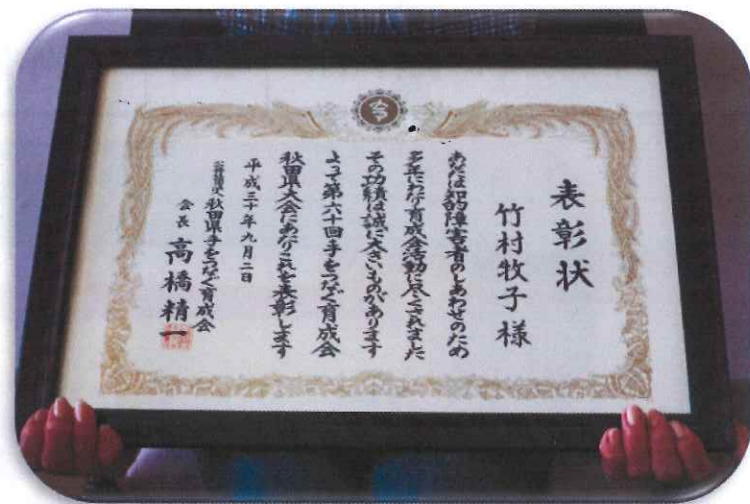 表彰状
竹村牧子様
あなたは知的障害者のしあわせのため
多年にわたり育成会活動に尽くされました
その功績は誠に大きいものがあります
よって第六十回手をつなぐ育成会
秋田県大会にあたりこれを表彰します
平成三十年九月二日
秋田県手をつなぐ育成会
会長 高橋精一